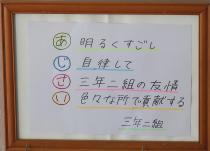 あ 明るくすごし
じ 自律して
さ 三年二組の友情
い 色々な所で貢献する
三年二組